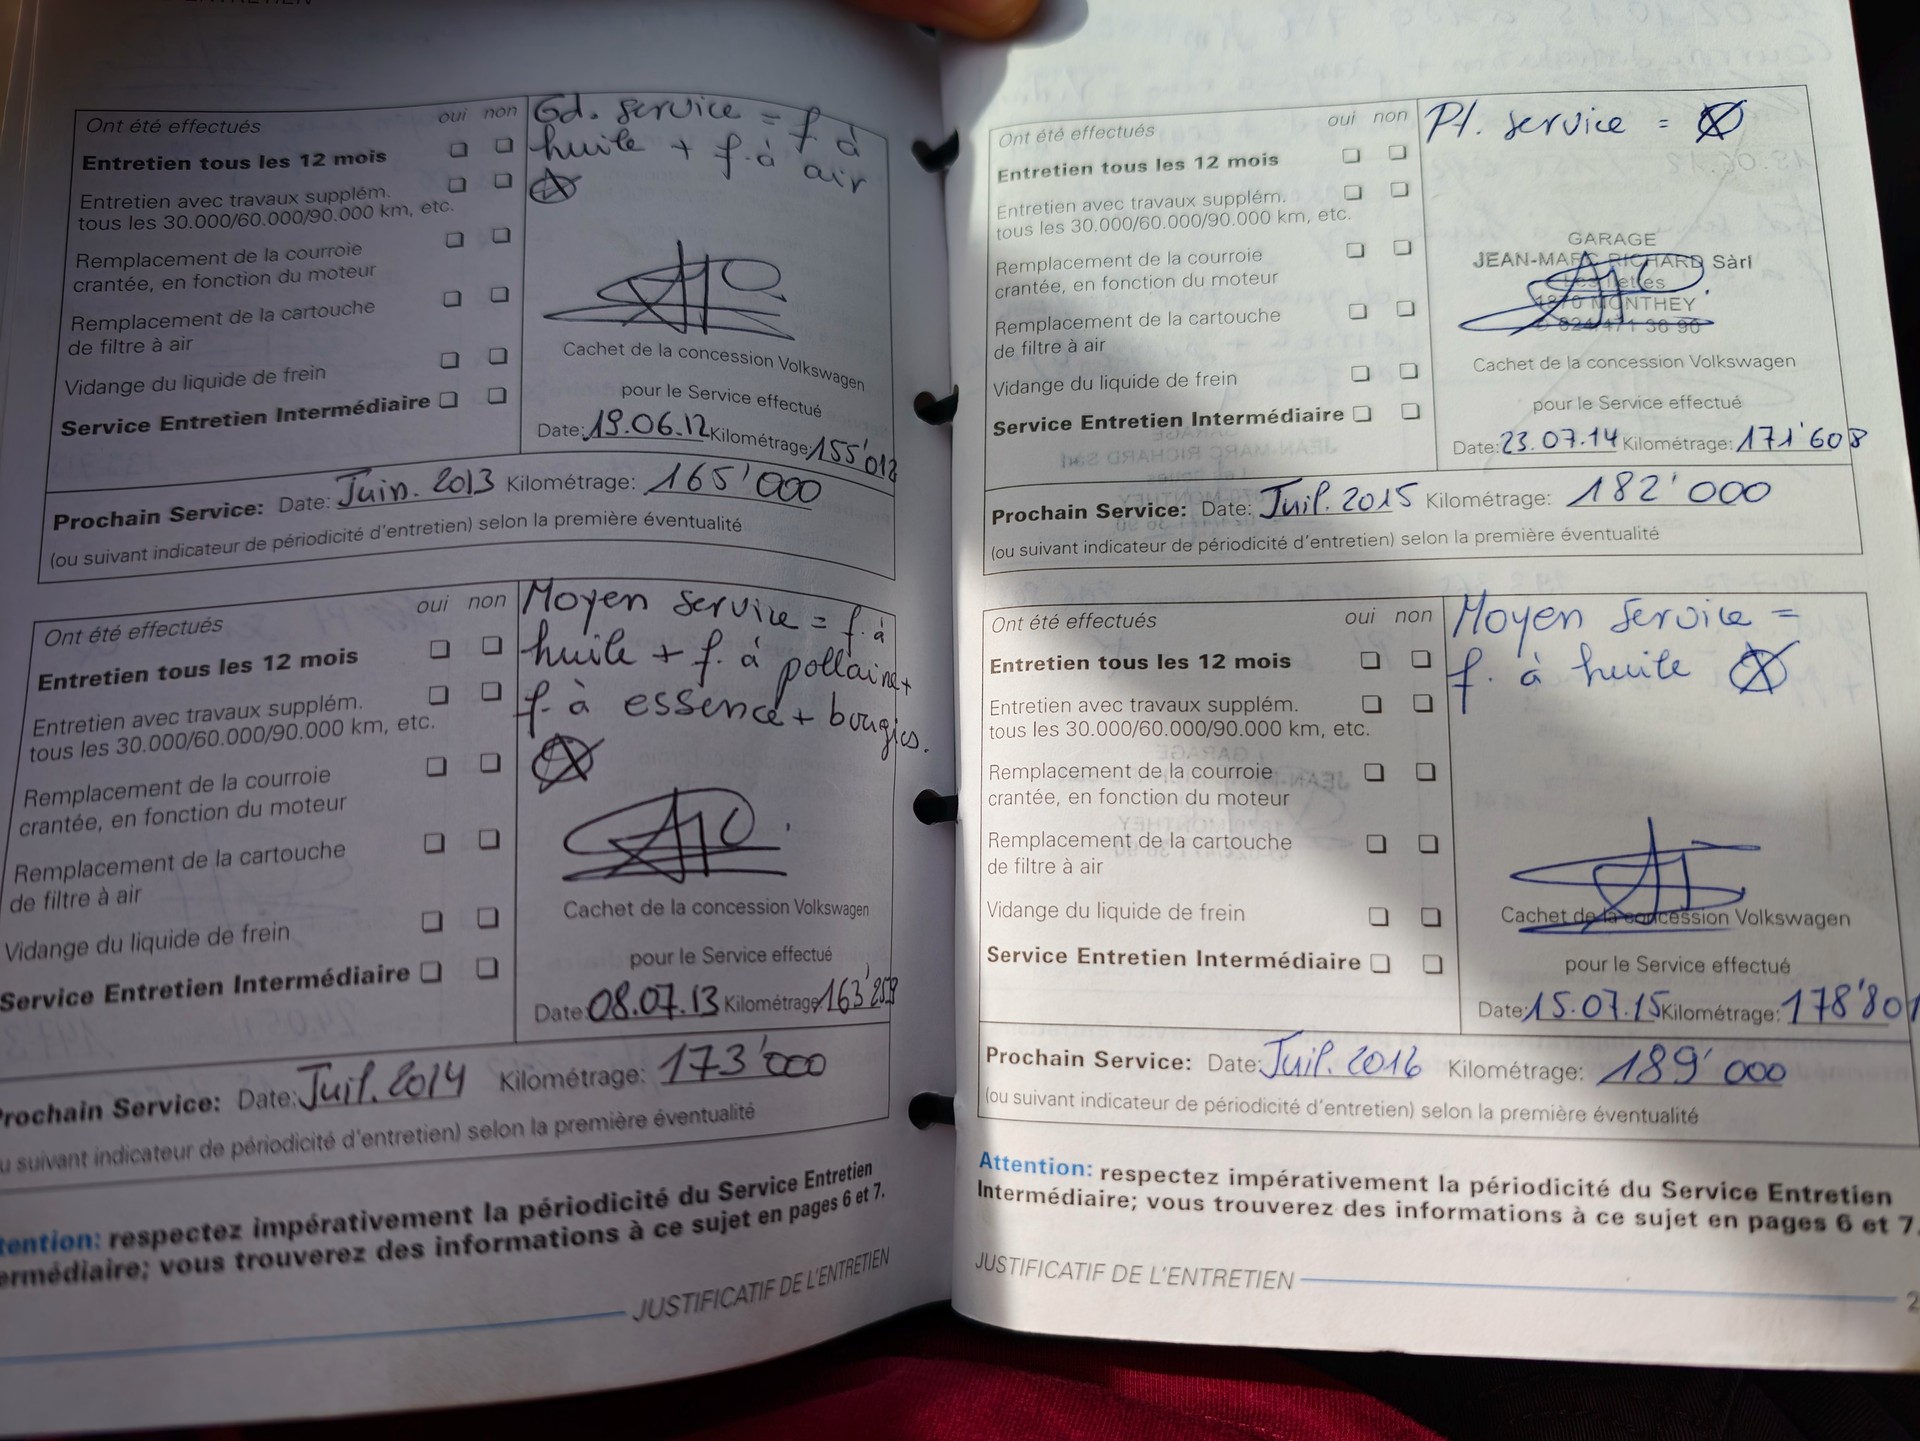 Ont été effectués oui non
Entretien tous les 12 mois
Entretien avec travaux supplém.
tous les 30.000/60.000/90.000 km, etc.
Remplacement de la courroie
crantée, en fonction du moteur
Remplacement de la cartouche
de filtre à air
Vidange du liquide de frein
Service Entretien Intermédiaire
Gd. service = f à
huile + f. à air
Cachet de la concession Volkswagen
pour le Service effectué
Date: 19.06.12 Kilométrage: 155'012
Prochain Service: Date: Juin. 2013 Kilométrage: 165'000
(ou suivant indicateur de périodicité d'entretien) selon la première éventualité
Ont été effectués oui non
Entretien tous les 12 mois
Entretien avec travaux supplém.
tous les 30.000/60.000/90.000 km, etc.
Remplacement de la courroie
crantée, en fonction du moteur
Remplacement de la cartouche
de filtre à air
Vidange du liquide de frein
Service Entretien Intermédiaire
Moyen service = f. à
huile + f. à pollaine+
f. à essence + bougies.
Cachet de la concession Volkswagen
pour le Service effectué
Date: 08.07.13 Kilométrage
Prochain Service: Date: Juil. 2014 Kilométrage: 173'000
u suivant indicateur de périodicité d'entretien) selon la première éventualité
tention: respectez impérativement la périodicité du Service Entretien
ermédiaire; vous trouverez des informations à ce sujet en pages 6 et 7.
JUSTIFICATIF DE L'ENTRETIEN
Ont été effectués oui non
Entretien tous les 12 mois
Entretien avec travaux supplém.
tous les 30.000/60.000/90.000 km, etc.
Remplacement de la courroie
crantée, en fonction du moteur
Remplacement de la cartouche
de filtre à air
Vidange du liquide de frein
Service Entretien Intermédiaire
Pt. service =
GARAGE
JEAN-MARC RICHARD Sàrl
1870 MONTHEY
Cachet de la concession Volkswagen
pour le Service effectué
Date: 23.07.14 Kilométrage: 171'608
Prochain Service: Date: Juil. 2015 Kilométrage: 182'000
(ou suivant indicateur de périodicité d'entretien) selon la première éventualité
Ont été effectués oui non
Entretien tous les 12 mois
Entretien avec travaux supplém.
tous les 30.000/60.000/90.000 km, etc.
Remplacement de la courroie
crantée, en fonction du moteur
Remplacement de la cartouche
de filtre à air
Vidange du liquide de frein
Service Entretien Intermédiaire
Moyen service =
f. à huile
Cachet de la concession Volkswagen
pour le Service effectué
Date: 15.07.15 Kilométrage: 178'801
Prochain Service: Date: Juil. 2016 Kilométrage: 189'000
(ou suivant indicateur de périodicité d'entretien) selon la première éventualité
Attention: respectez impérativement la périodicité du Service Entretien
Intermédiaire; vous trouverez des informations à ce sujet en pages 6 et 7.
JUSTIFICATIF DE L'ENTRETIEN 2